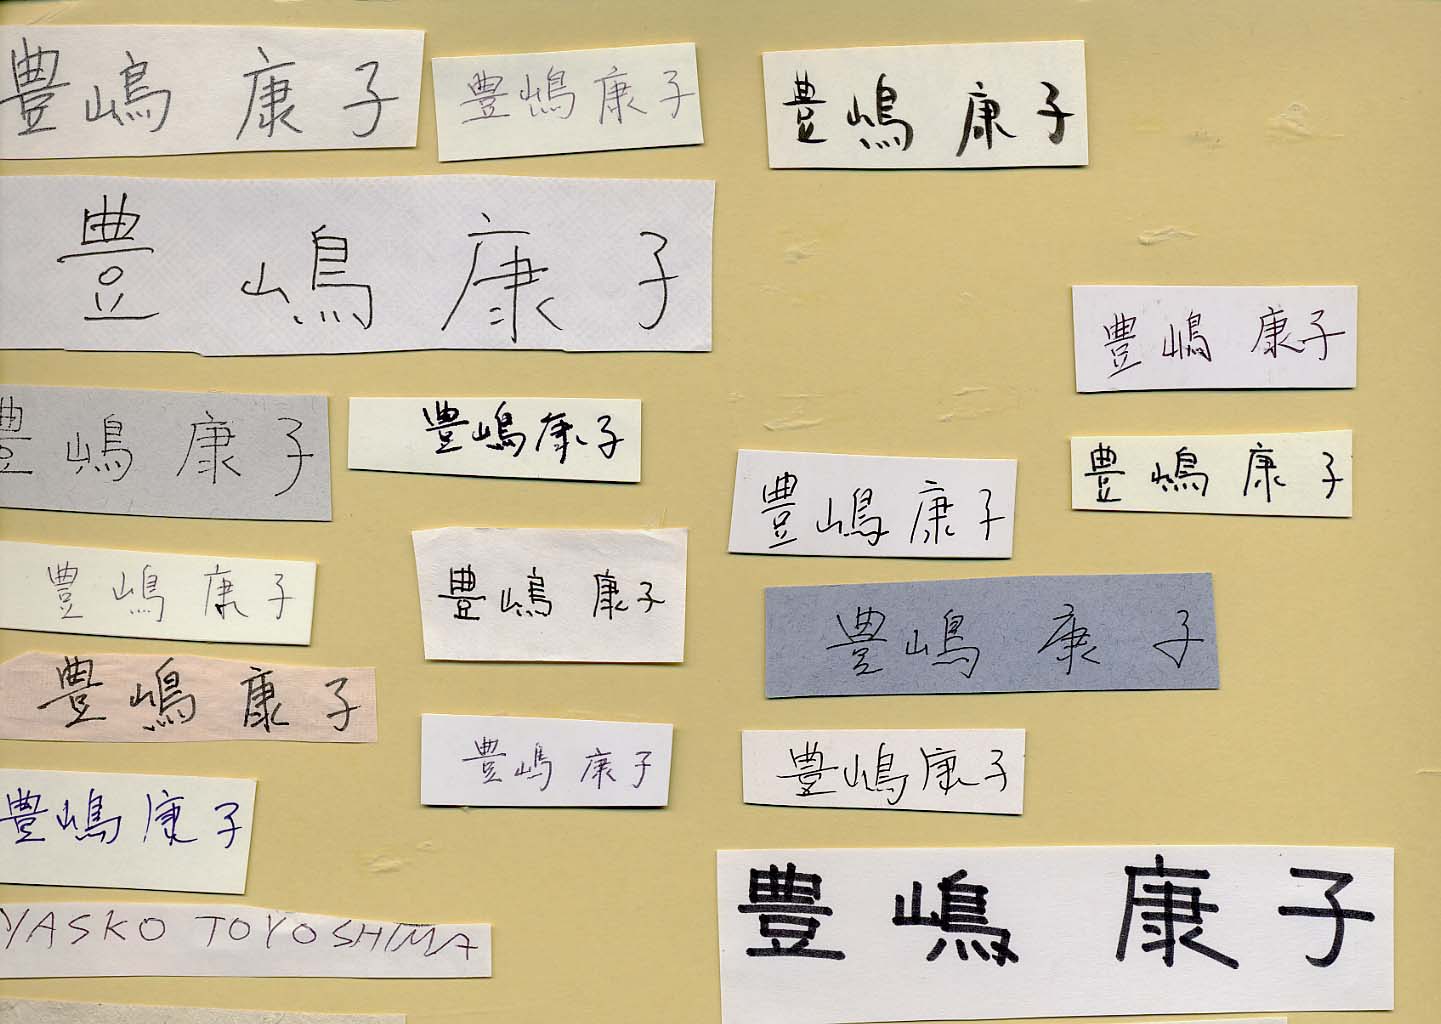 豊嶋 康子
豊嶋康子
豊嶋 康子
豊 嶋 康 子
豊嶋 康子
豊嶋 康 子
豊嶋康子
豊嶋 康 子
豊嶋康子
豊嶋 康子
豊嶋 康子
豊嶋 康 子
豊嶋 康 子
豊嶋 康子
豊嶋康子
豊嶋康子
豊 嶋 康 子
YASKO TOYOSHIMA